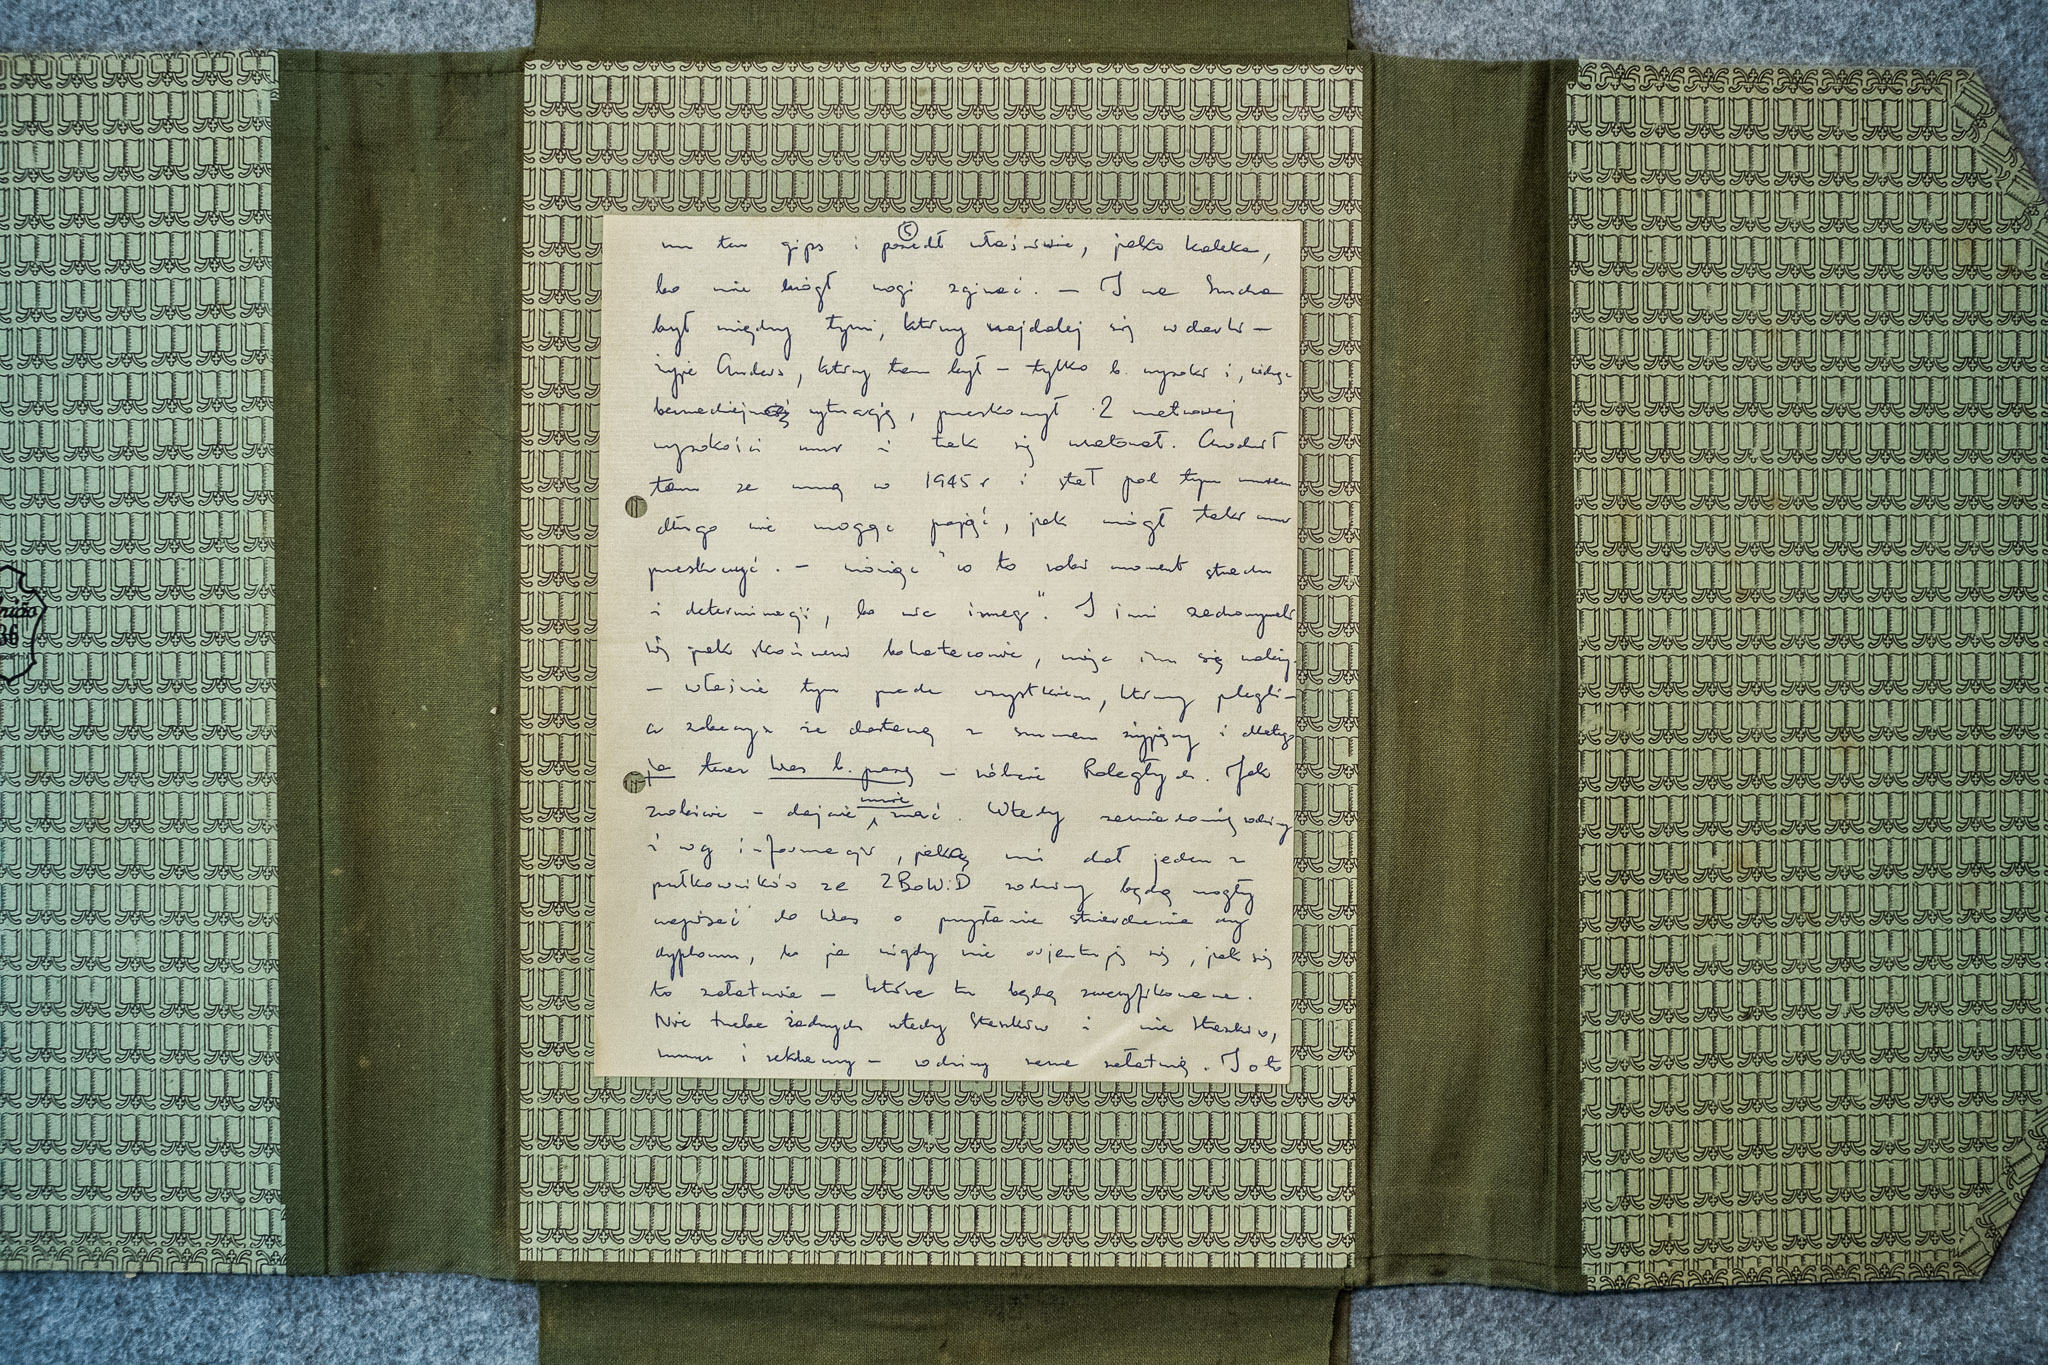 5
mu ten gips i poszedł właściwie, jako kaleka,
bo nie mógł nogi zginać. – I na
był między tymi, którzy najdalej się wdarli –
żyje Anders, który tam był – tylko b. wysoki i, widząc
beznadziejną sytuację, przeskoczył 2 metrowej
wysokości mur i tak się uratował. Chodził
tam ze mną w 1945 r i stał pod tym murem
długo nie mogąc pojąć, jak mógł taki mur
przeskoczyć. – mówiąc "co to robi moment strachu
i determinacji, bo nic innego". I inni zachowywali
się jak skończeni bohaterowie, więc im się należy
– właśnie tym przede wszystkim, którzy polegli –
a zobaczysz że dostaną z żyjący i dlatego
ja teraz Was b. proszę – róbcie Poległych. Jak
zrobicie – dajcie mnie znać. Wtedy zawiadomię rodziny
i wg informacji, jaką mi dał jeden z
pułkowników ze ZBoWiD rodziny będą mogły
napisać do Was o przysłanie stwierdzenia czy
dyplomu, bo ja nigdy nie orjentuję się, jak się
to załatwia – które tu będą zweryfikowane.
Nie trzeba żadnych wtedy Staszków i nie Staszków,
szumu i reklamy – rodziny same załatwią. I o to
36